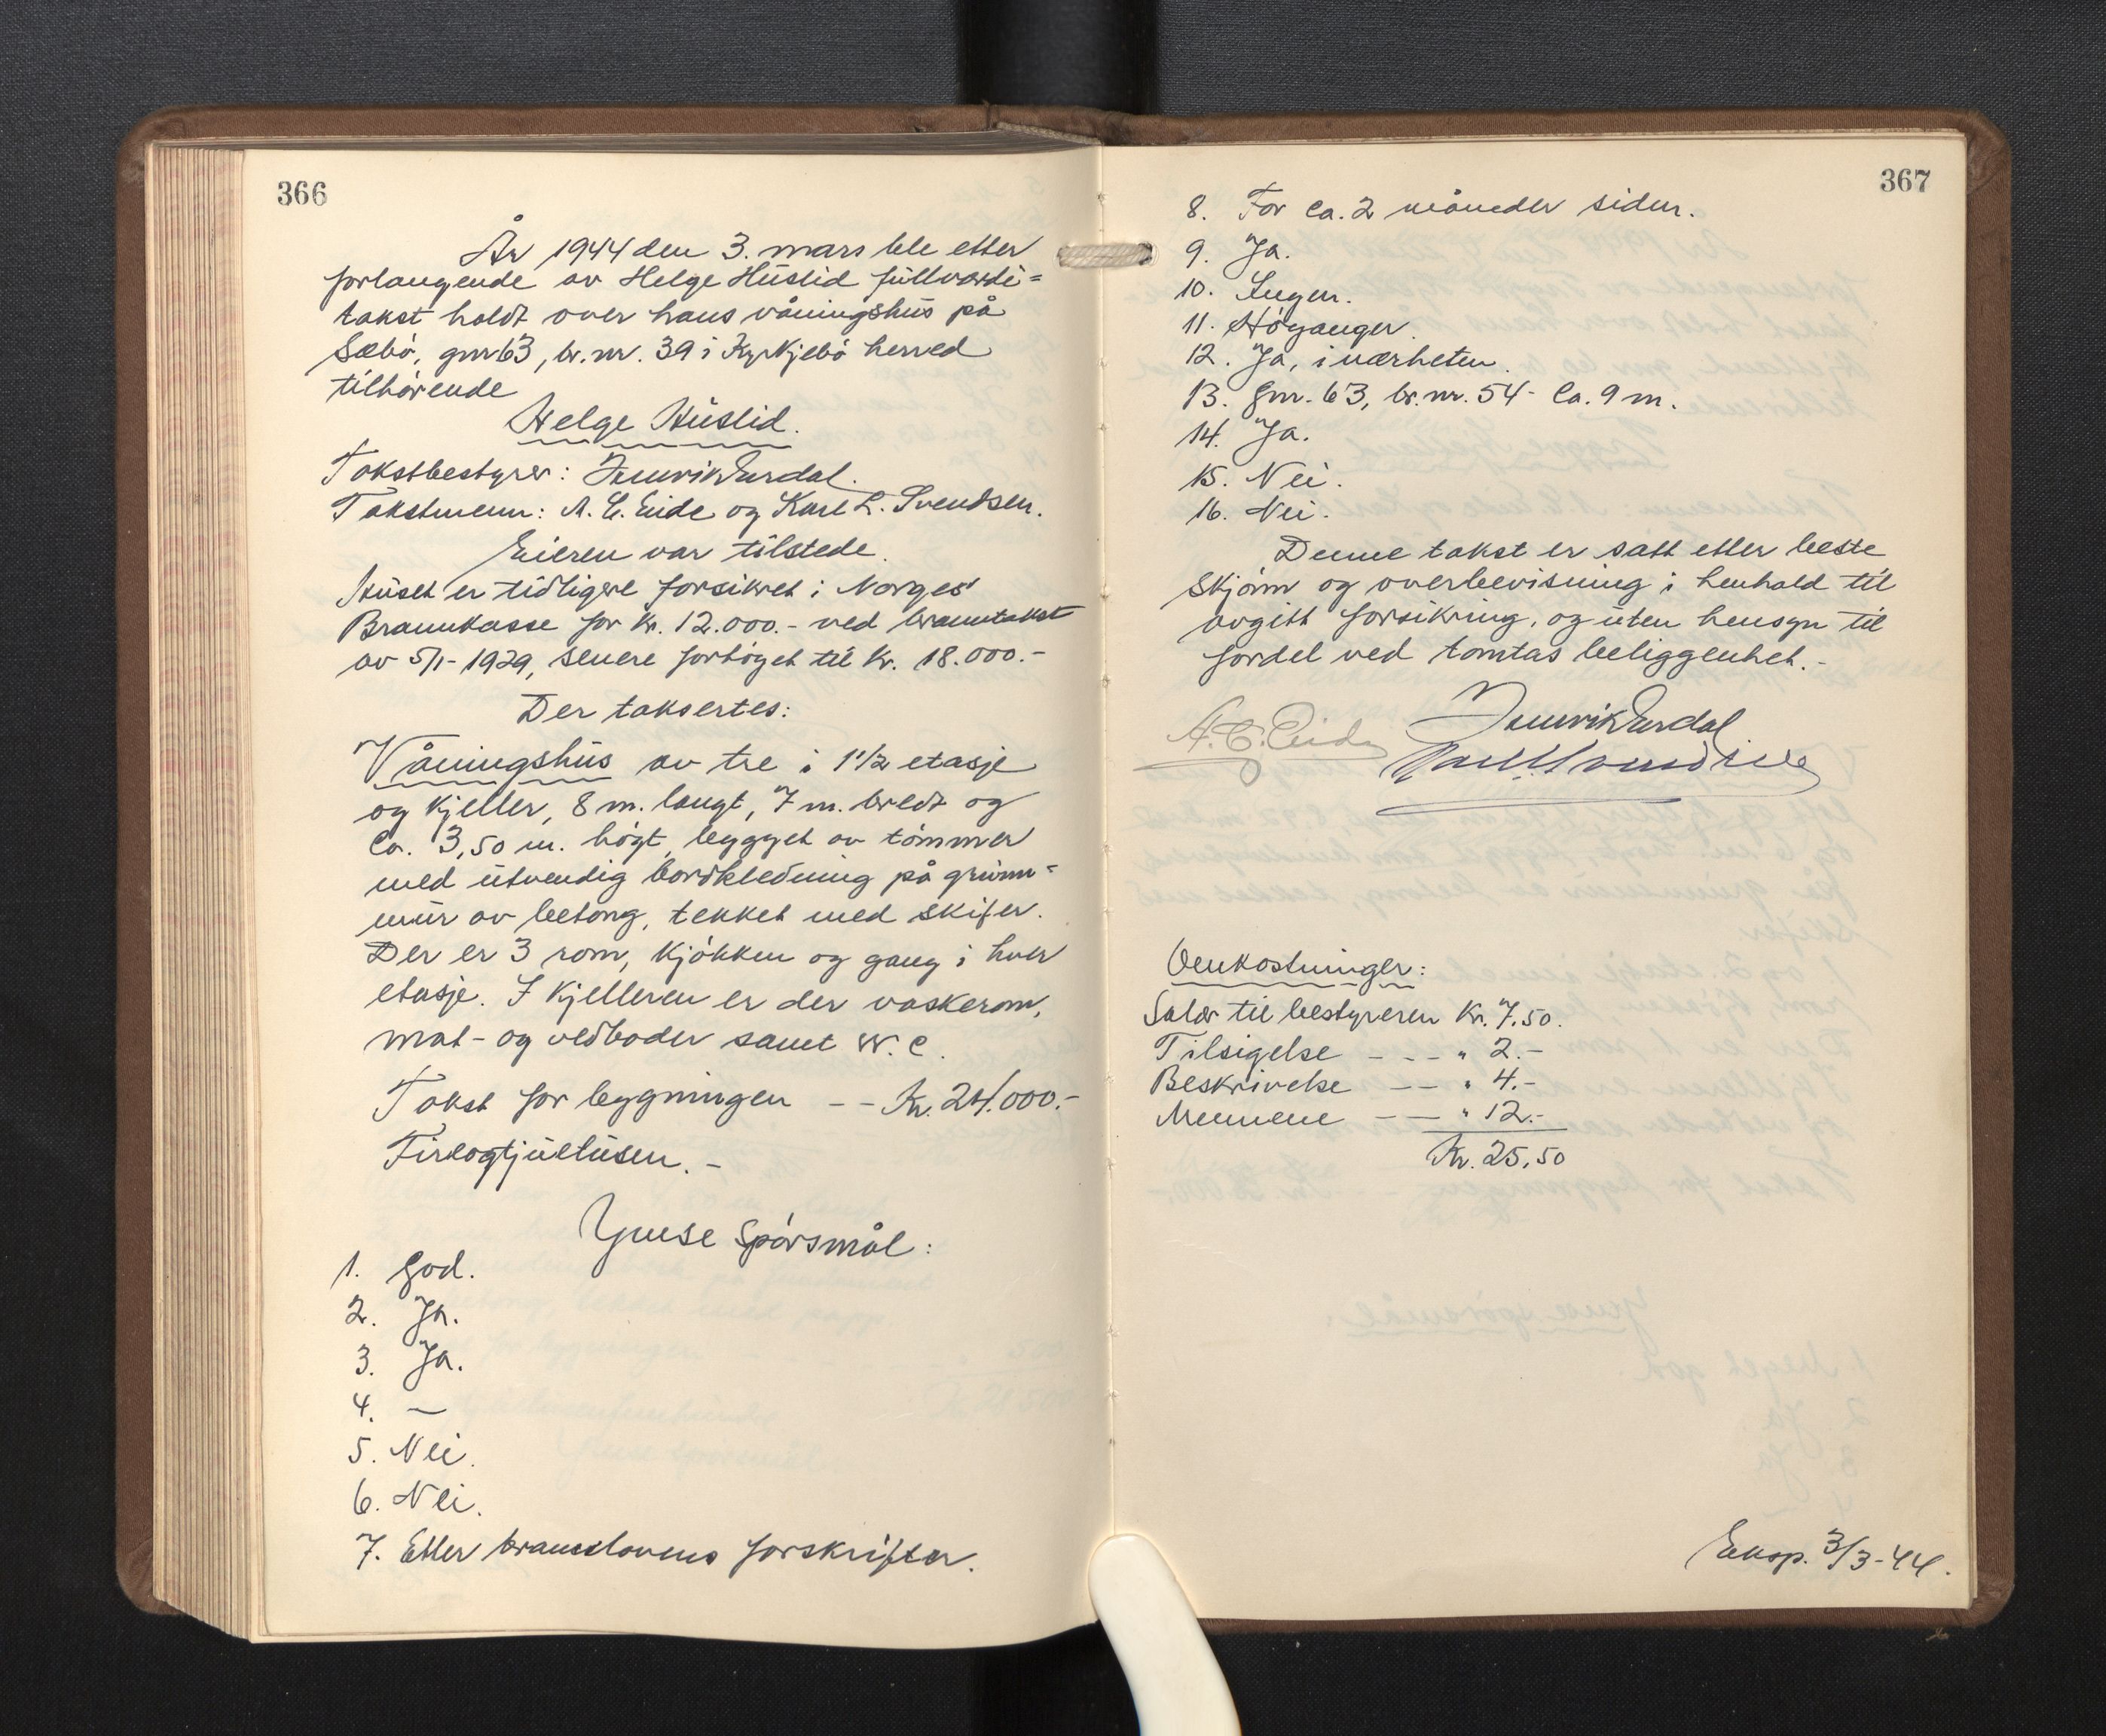 366
År 1944 den 3. mars ble etter
forlangende av Helge Huslid fullverdi=
takst holdt over hans våningshus på
Sæbö, gnr 63, br. nr. 39 i Kyrkjebö herred
tilhörende
Helge Huslid.
Takstbestyrer: Erdal.
Takstmenn: A. C. Eide og Karl L. Svendsen.
Eieren var tilstede.
Huset er tidligere forsikret i Norges
Brannkasse for kr. 12.000.- ved branntakst
av 5/1-1929, senere forhöyet til kr. 18.000.-
Der taksertes:
Våningshus av tre i 1 1/2 etasje
og kjeller, 8 m. langt, 7 m. bredt og
Ca. 3,50 m. högt, bygget av tömmer
med utvendig bordkledning på grunn=
mur av betong, tekket med skifer.
Der er 3 rom, kjökken og gang i hver
etasje. I kjelleren er der vaskerom,
mat- og vedboder samt W. C.
Takst for bygningen -- Kr. 24.000.-
Fireogtjuetusen.-
Ymse Spörsmål:
1. God.
2. Ja.
3. Ja.
4. —
5. Nei.
6. Nei.
7. Etter brannlovens forskrifter.
367
8. For ca. 2 måneder siden.
9. Ja.
10. Ingen.
11. Höyanger.
12. Ja, i nærheten.
13. Gnr. 63, br. nr. 54 - Ca. 9 m.
14. Ja.
15. Nei.
16. Nei.
Denne takst er satt etter beste
Skjönn og overbevisning i henhold til
avgitt forsikring, og uten hensyn til
fordel ved tomtas beliggenhet.-
A. C. Eide Erdal
Karl L. Svendsen
Omkostninger:
Salær til bestyreren Kr. 7.50.
Tilsigelse - - - " 2.-
Beskrivelse — - " 4.-
Mennene - — " 12.-
Kr. 25,50
Eksp. 3/3-44.